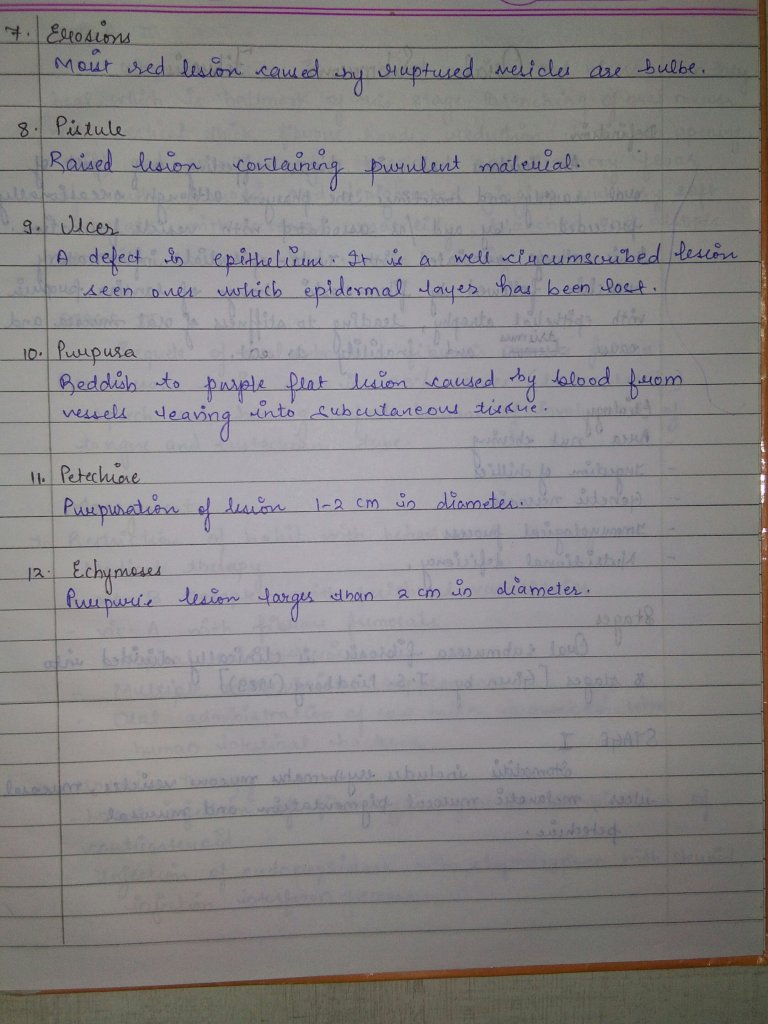 7. Erosions
Moist red lesion caused by ruptured vesicles are bulbe.
8. Pistule
Raised lesion containing purulent material.
9. Ulcer
A defect in epithelium. It is a well circumscribed lesion
seen over which epidermal layer has been lost.
10. Purpura
Reddish to purple flat lesion caused by blood from
vessels leaving into subcutaneous tissue.
11. Petechiae
Purpuration of lesion 1-2 cm in diameter.
12. Echymoses
Purpuric lesion larges than 2 cm in diameter.